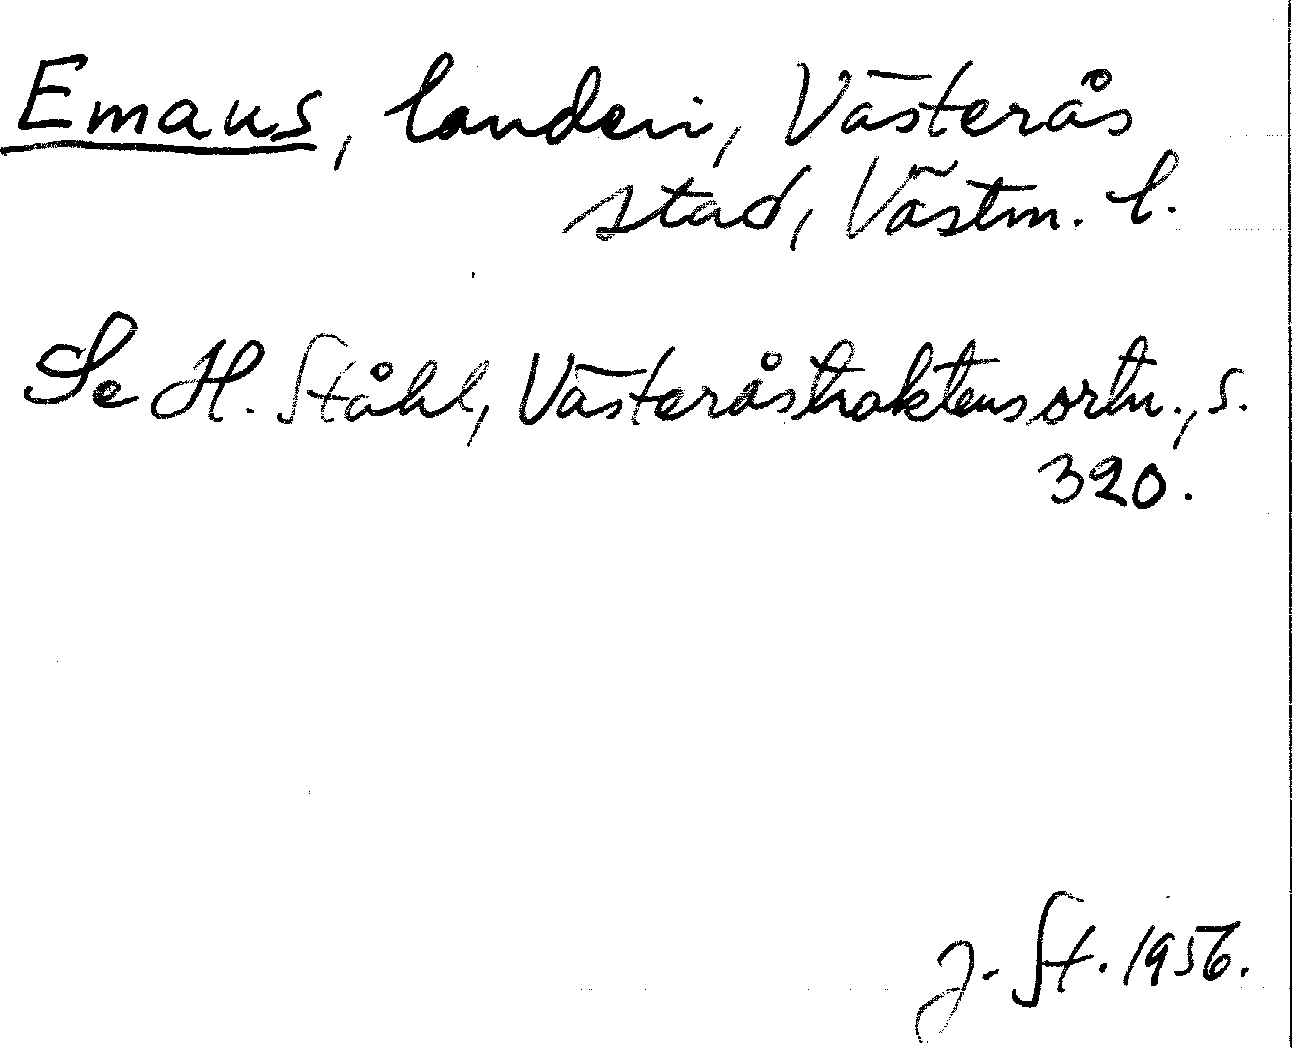 Emaus, landeri, Västerås
stad, Västm. l.
Se H. Ståhl, Västeråstraktens ortn., s.
320.
J. St. 1956.